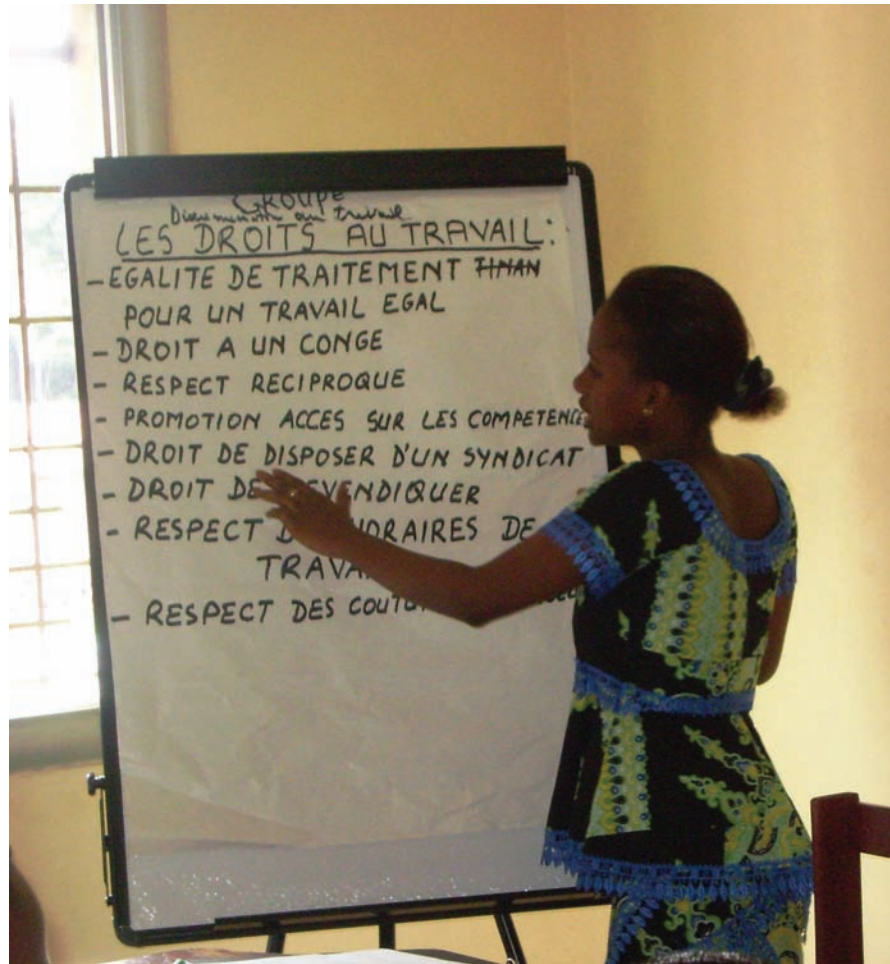 GROUPE
Discrimination au travail
LES DROITS AU TRAVAIL:
- EGALITE DE TRAITEMENT
POUR UN TRAVAIL EGAL
- DROIT A UN CONGE
- RESPECT RECIPROQUE
- PROMOTION ACCES SUR LES COMPETENCE
- DROIT DE DISPOSER D'UN SYNDICAT
- DROIT DE REVENDIQUER
- RESPECT HORAIRES DE
TRAVA
- RESPECT DES